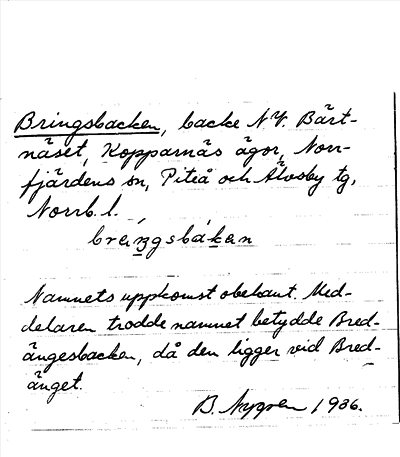 Bringsbacken, backe NV. Bärt-
näset, Kopparnäs ägor, Norr-
fjärdens sn, Piteå och Älvsby tg,
Norrb. l.
Namnets uppkomst obekant. Med-
delaren trodde namnet betydde Bred-
ängesbacken, då den ligger vid Bred-
änget.
B. Nygren 1936.